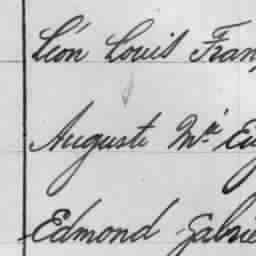 Léon Louis Fran
Auguste Mie Eug
Edmond Gabrie